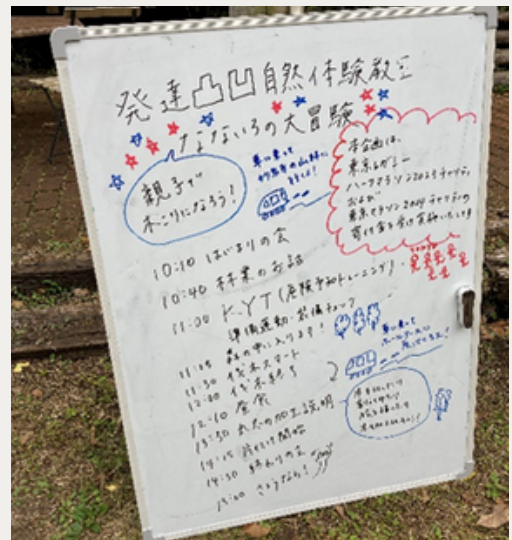 発達凸凹自然体験教室
なないろの大冒険
親子で
木こりになろう!
車に乗って
本企画は、
東京レガシー
ハーフマラソン2023チャリティ
および
東京マラソン2024チャリティの
寄付金を受け実施しています
10:10 はじまりの会
10:40 林業のお話
11:00 KYT(危険予知トレーニング)
準備運動・装備チェック
11:15 森の中に入ります!
11:30 伐木スタート
12:00 伐木終了
12:10 昼食
13:30 丸太の加工説明
14:15 片付け開始
14:30 終わりの会
15:00 さようなら!
車に乗って